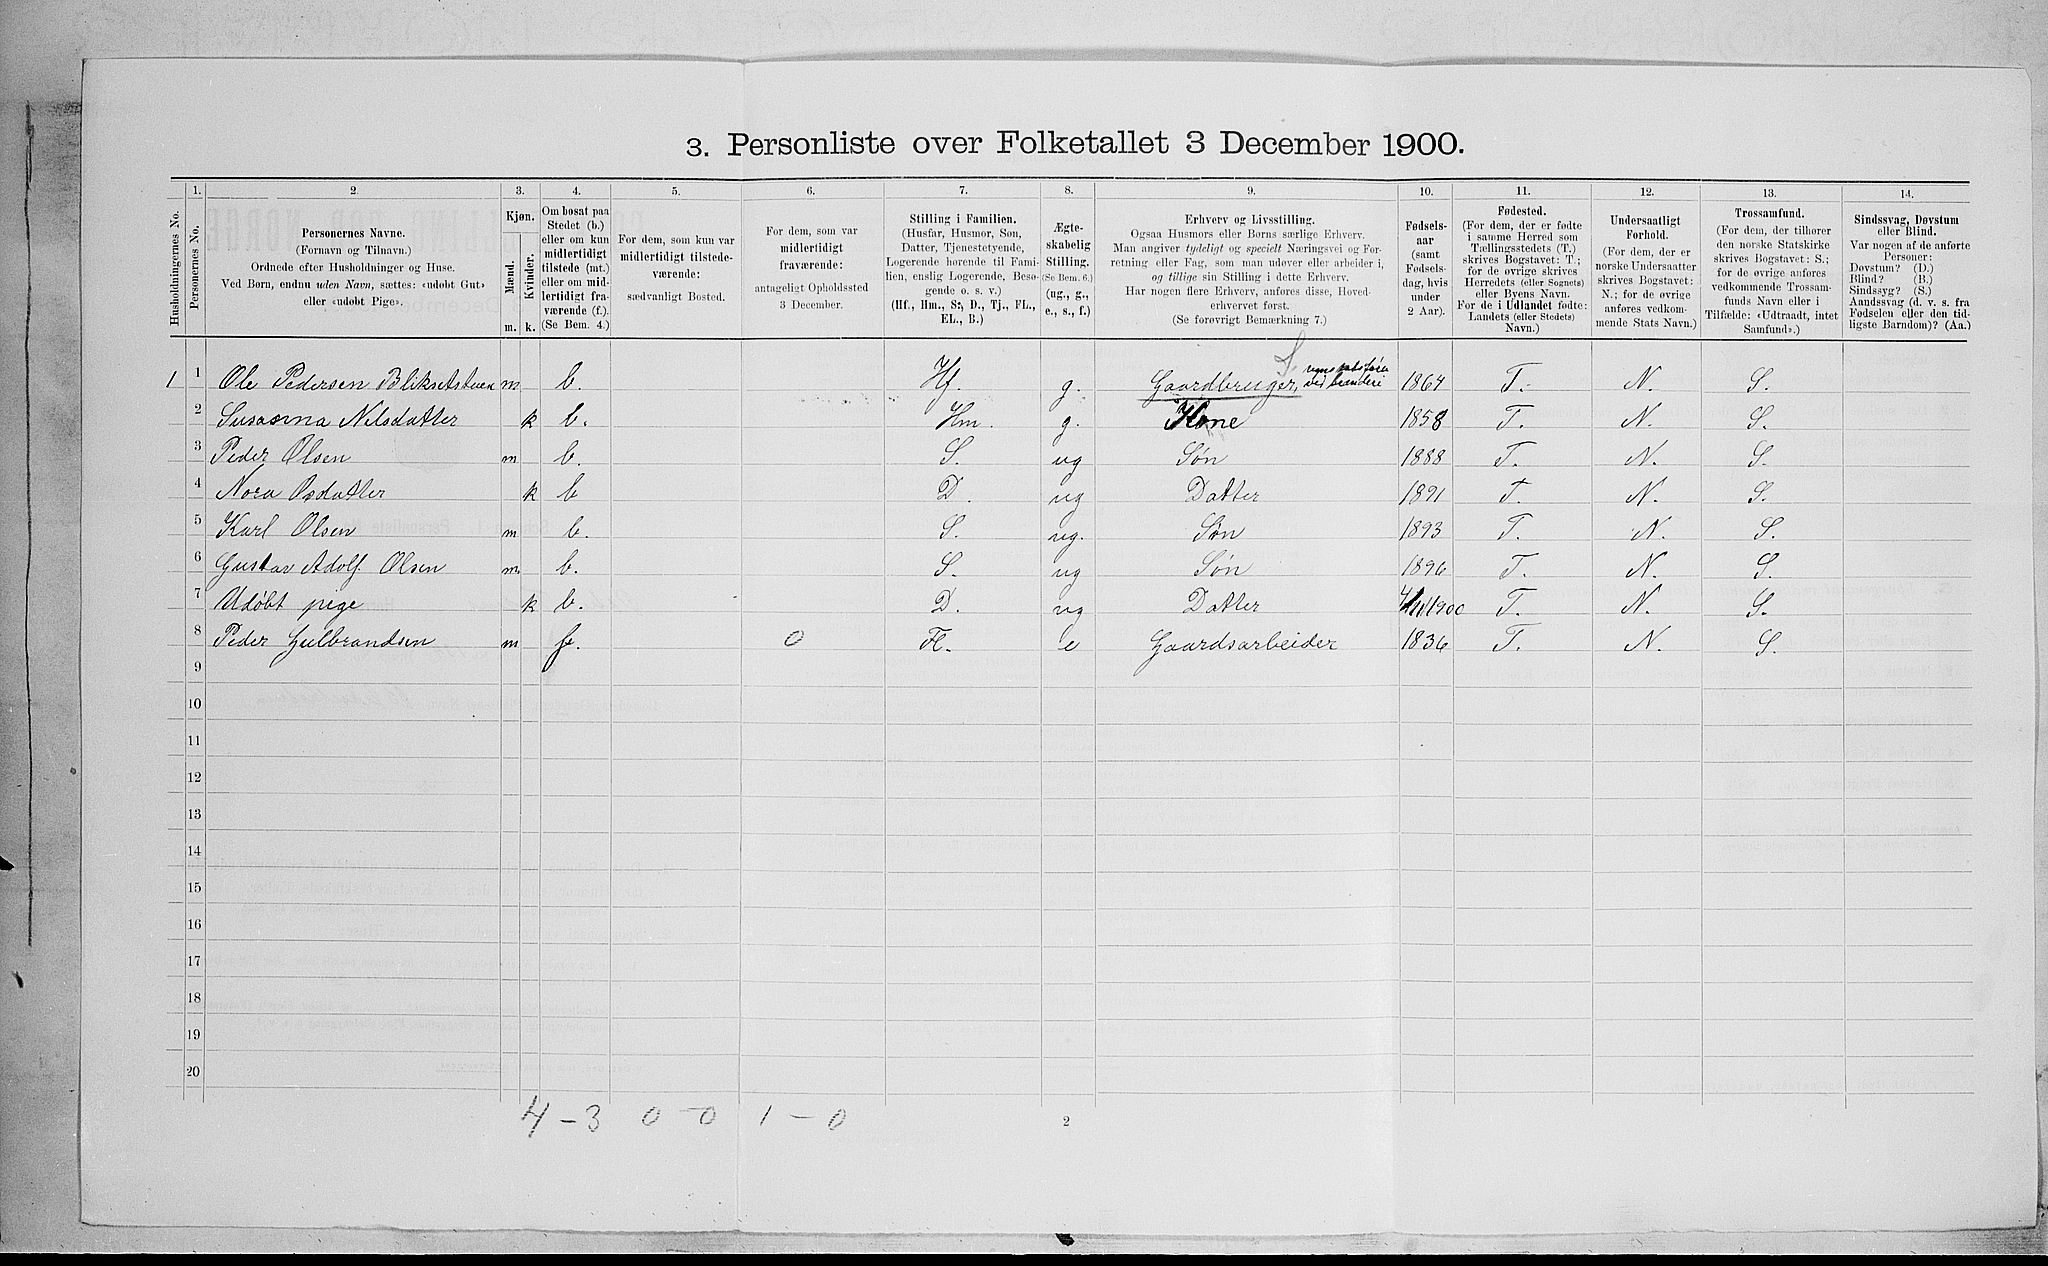 3. Personliste over Folketallet 3 December 1900.
1. 2. 3. 4. 5. 6. 7. 8. 9. 10. 11. 12. 13. 14.
Husholdningernes No.
Personernes No.
Personernes Navne.
(Fornavn og Tilnavn.)
Ordnede efter Husholdninger og Huse.
Ved Børn, endnu uden Navn, sættes: «udøbt Gut»
eller «udøbt Pige».
Kjøn.
Mænd.
Kvinder.
m. k.
Om bosat paa
Stedet (b.)
eller om kun
midlertidigt
tilstede (mt.)
eller om mid-
lertidigt fra-
værende (f.).
(Se Bem. 4.)
For dem, som kun var
midlertidigt tilstede-
værende:
sædvanligt Bosted.
For dem, som var
midlertidigt
fraværende:
antageligt Opholdssted
3 December.
Stilling i Familien.
(Husfar, Husmor, Søn,
Datter, Tjenestetyende,
Logerende hørende til Fami-
lien, enslig Logerende, Besø-
gende o. s. v.)
(Hf., Hm., S., D., Tj., FL.,
EL., B.)
Ægte-
skabelig
Stilling.
(Se Bem. 6.)
(ug., g.,
e., s., f.)
Erhverv og Livsstilling.
Ogsaa Husmors eller Børns særlige Erhverv.
Man angiver tydeligt og specielt Næringsvei og For-
retning eller Fag, som man udøver eller arbeider i,
og tillige sin Stilling i dette Erhverv.
Har nogen flere Erhverv, anføres disse, Hoved-
erhvervet først.
(Se forøvrigt Bemærkning 7.)
Fødsels-
aar
(samt
Fødsels-
dag, hvis
under
2 Aar).
Fødested.
(For dem, der er fødte
i samme Herred som
Tællingsstedets (T.)
skrives Bogstavet: T.;
for de øvrige skrives
Herredets (eller Sognets)
eller Byens Navn.
For de i Udlandet fødte:
Landets (eller Stedets)
Navn.)
Undersaatligt
Forhold.
(For dem, der er
norske Undersaatter
skrives Bogstavet:
N.; for de øvrige
anføres vedkom-
mende Stats Navn.)
Trossamfund.
(For dem, der tilhører
den norske Statskirke
skrives Bogstavet: S.;
for de øvrige anføres
vedkommende Trossam-
funds Navn eller i
Tilfælde: «Udtraadt, intet
Samfund».)
Sindssvag, Døvstum
eller Blind.
Var nogen af de anførte
Personer:
Døvstum? (D.)
Blind? (B.)
Sindssyg? (S.)
Aandssvag (d. v. s. fra
Fødselen eller den tid-
ligste Barndom)? (Aa.)
S.
1 1 Ole Pedersen Bliksetstuen m b. Hf. g. Gaardbruger, regnskabsfører ved brænderi 1864 T. N. S.
2 Susanna Nilsdatter k b. Hm. g. Kone 1858 T. N. S.
3 Peder Olsen m b. S. ug Søn 1888 T. N. S.
4 Nora Osdatter k b D. ug Datter 1891 T. N. S.
5 Karl Olsen m b. S. ug. Søn 1893 T. N. S.
6 Gustav Adolf Olsen m. b. S. ug Søn 1896 T. N. S.
7 Udøbt pige k b. D. ug Datter 4/11 1900 T. N. S.
8 Peder Gulbrandsen m f. 0 Fl. e Gaardsarbeider 1836 T. N. S.
9
10
11
12
13
14
15
16
17
18
19
20
4 - 3 0 - 0 1 - 0
2